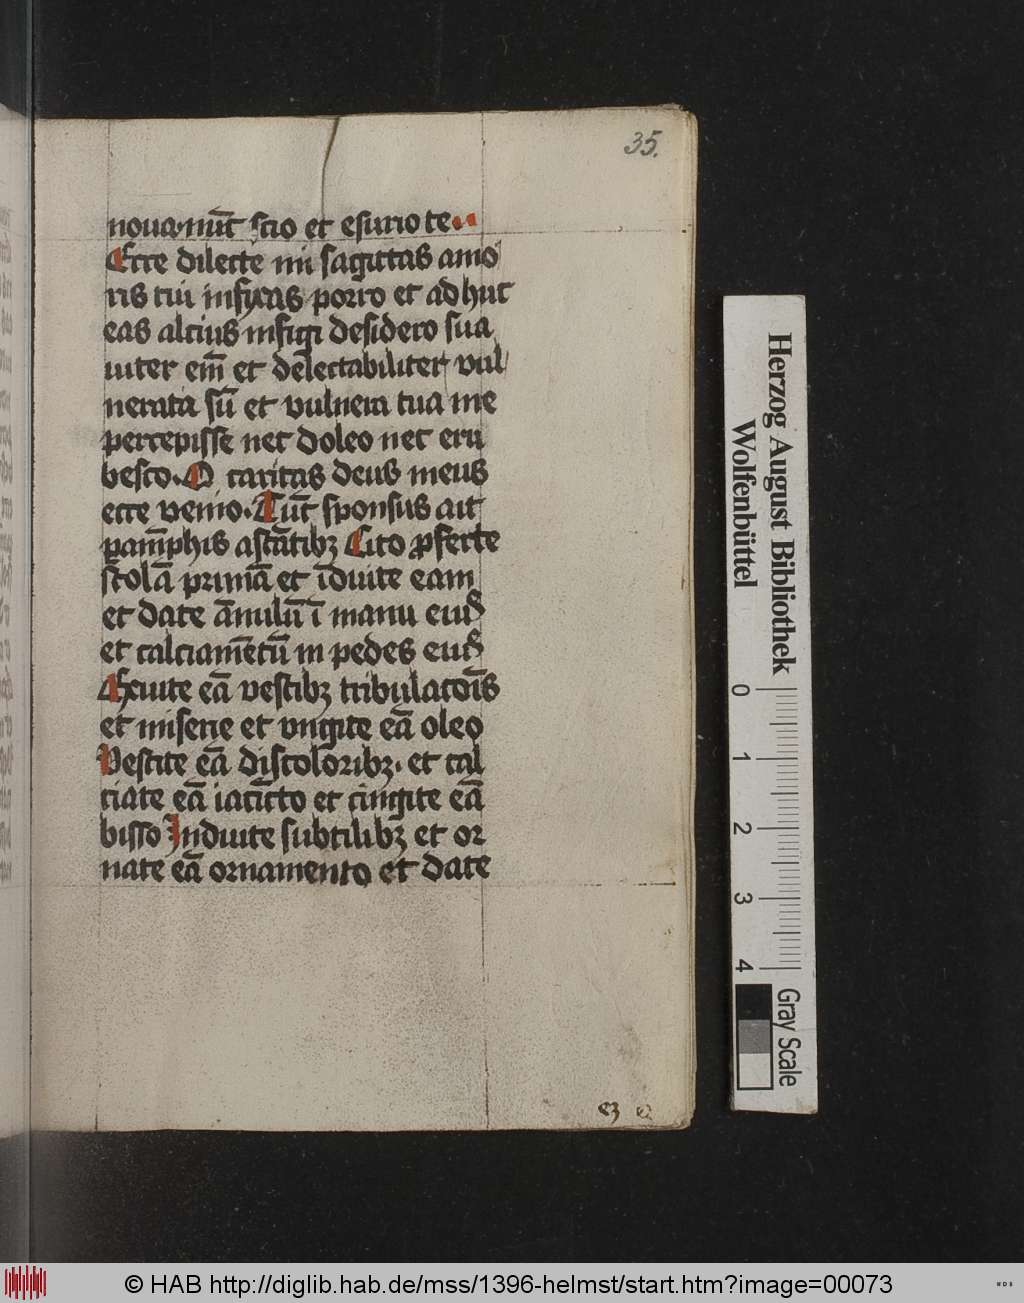 35.
noua. nūc scio et esurio te
Ecce dilecte mi sagittas amo
ris tui infixas porro et adhuc
eas alcius infigi desidero sua
uiter em̄ et delectabiliter vul
nerata sū et vulnera tua me
percepisse nec doleo nec eru
besco. O caritas deus meus
ecce venio. Tūc sponsus ait
pam̄phis astātibꝫ Cito ꝓferte
stolā primā et īduite eam
et date āmulū ī manu eiuꝰ
et calciamētū in pedes eiuꝰ
vestibꝫ tribulacōis
et miserie et vngite eā oleo
Vestite eā discoloribꝫ. et cal
ciate eā iacīcto et cingite eā
bisso Induite subtilibꝫ et or
nate eā ornamento et date
Herzog August Bibliothek
Wolfenbüttel
0 1 2 3 4
Gray Scale
© HAB http://diglib.hab.de/mss/1396-helmst/start.htm?image=00073